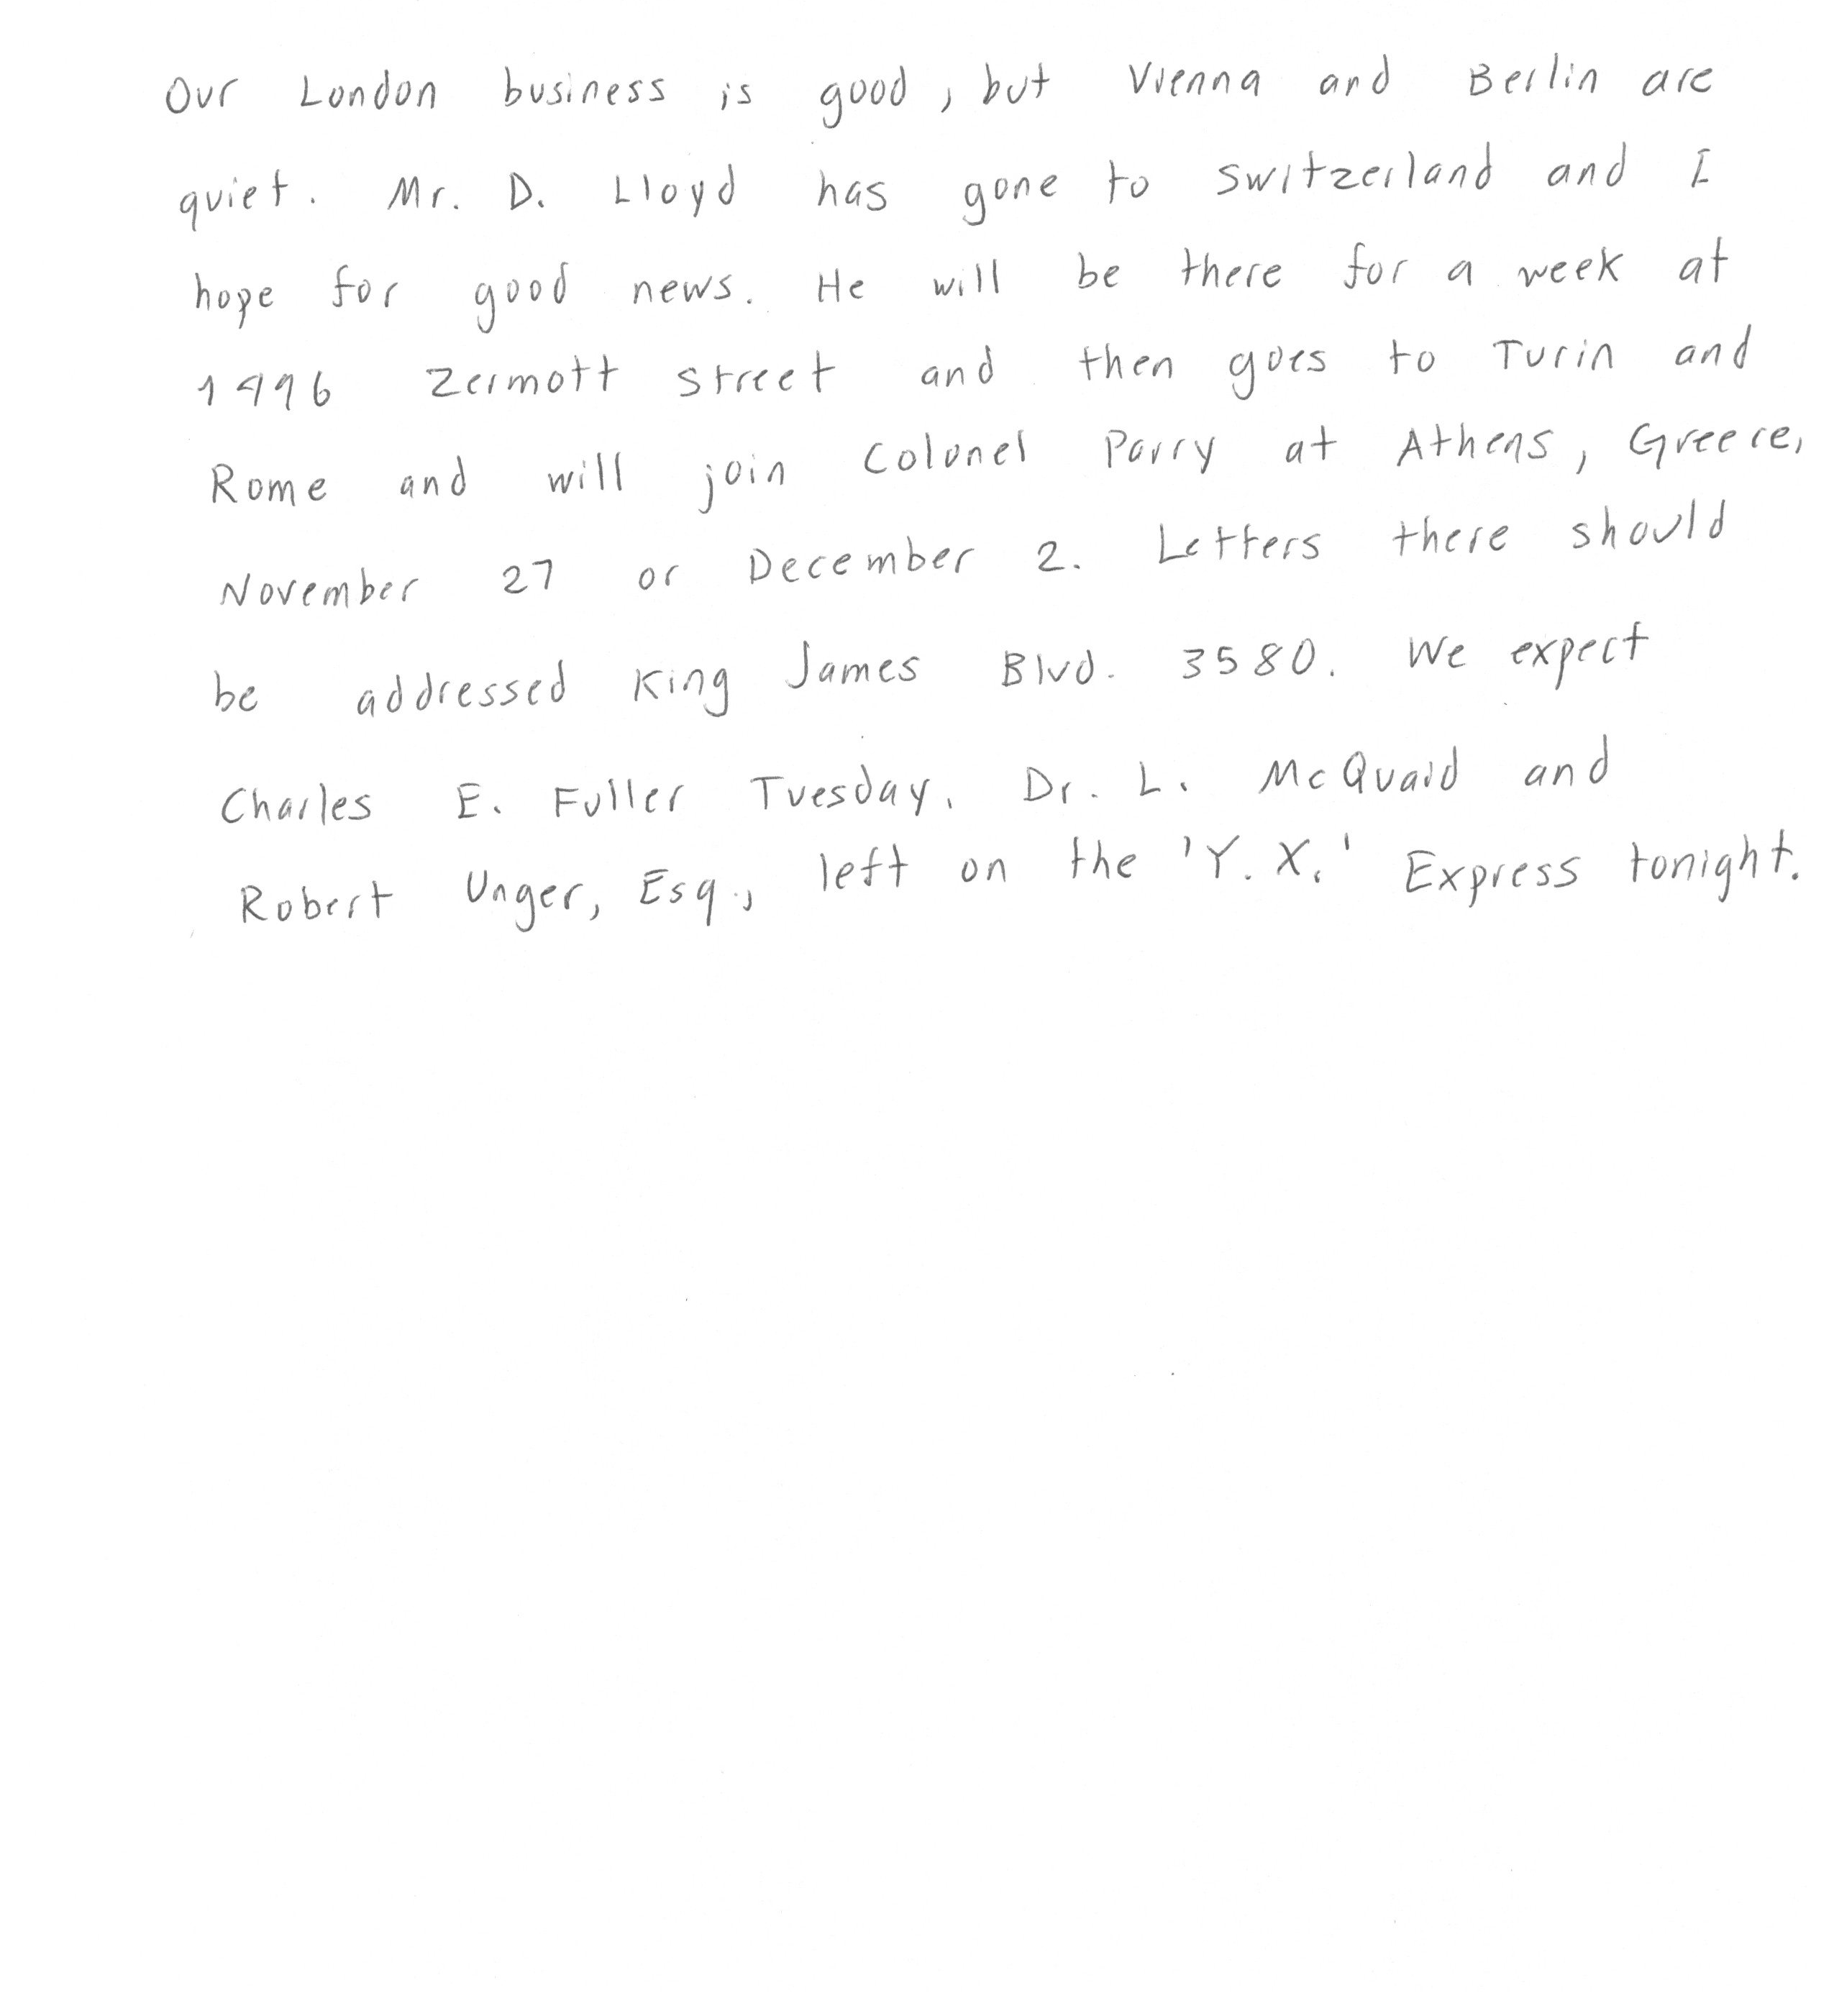 Our London business is good, but Vienna and Berlin are
quiet. Mr. D. Lloyd has gone to Switzerland and I
hope for good news. He will be there for a week at
1996 Zermott street and then goes to Turin and
Rome and will join Colonel Parry at Athens, Greece,
November 27 or December 2. Letters there should
be addressed King James Blvd. 3580. We expect
Charles E. Fuller Tuesday. Dr. L. McQuaid and
Robert Unger, Esq., left on the 'Y.X.' Express tonight.